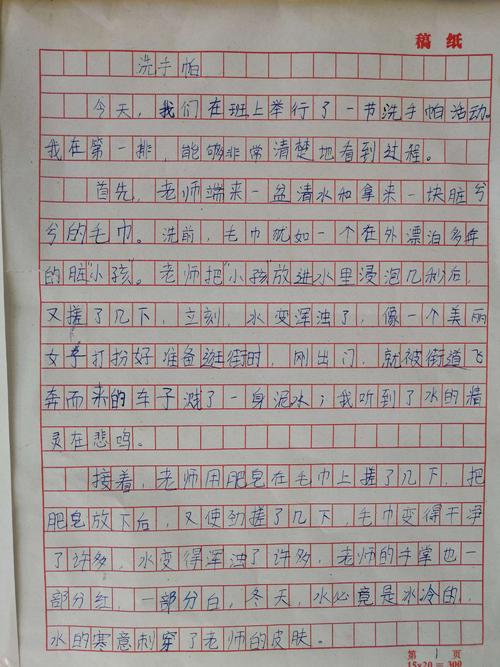 稿纸
洗手帕
今天，我们在班上举行了一节洗手帕活动。
我在第一排，能够非常清楚地看到过程。
首先，老师端来一盆清水和拿来一块脏兮
兮的毛巾。洗前，毛巾就如一个在外漂泊多年
的脏“小孩”。老师把“小孩”放进水里浸泡几秒后，
又搓了几下，立刻，水变浑浊了，像一个美丽
女子打扮好准备逛街时，刚出门，就被街道飞
奔而来的车子溅了一身泥水；我听到了水的精
灵在悲鸣。
接着，老师用肥皂在毛巾上搓了几下，把
肥皂放下后，又使劲搓了几下，毛巾变得干净
了许多，水变得浑浊了许多，老师的手掌也一
部分红，一部分白，冬天，水必竟是水冷的，
水的寒意刺穿了老师的皮肤。
第1页
15×20=300